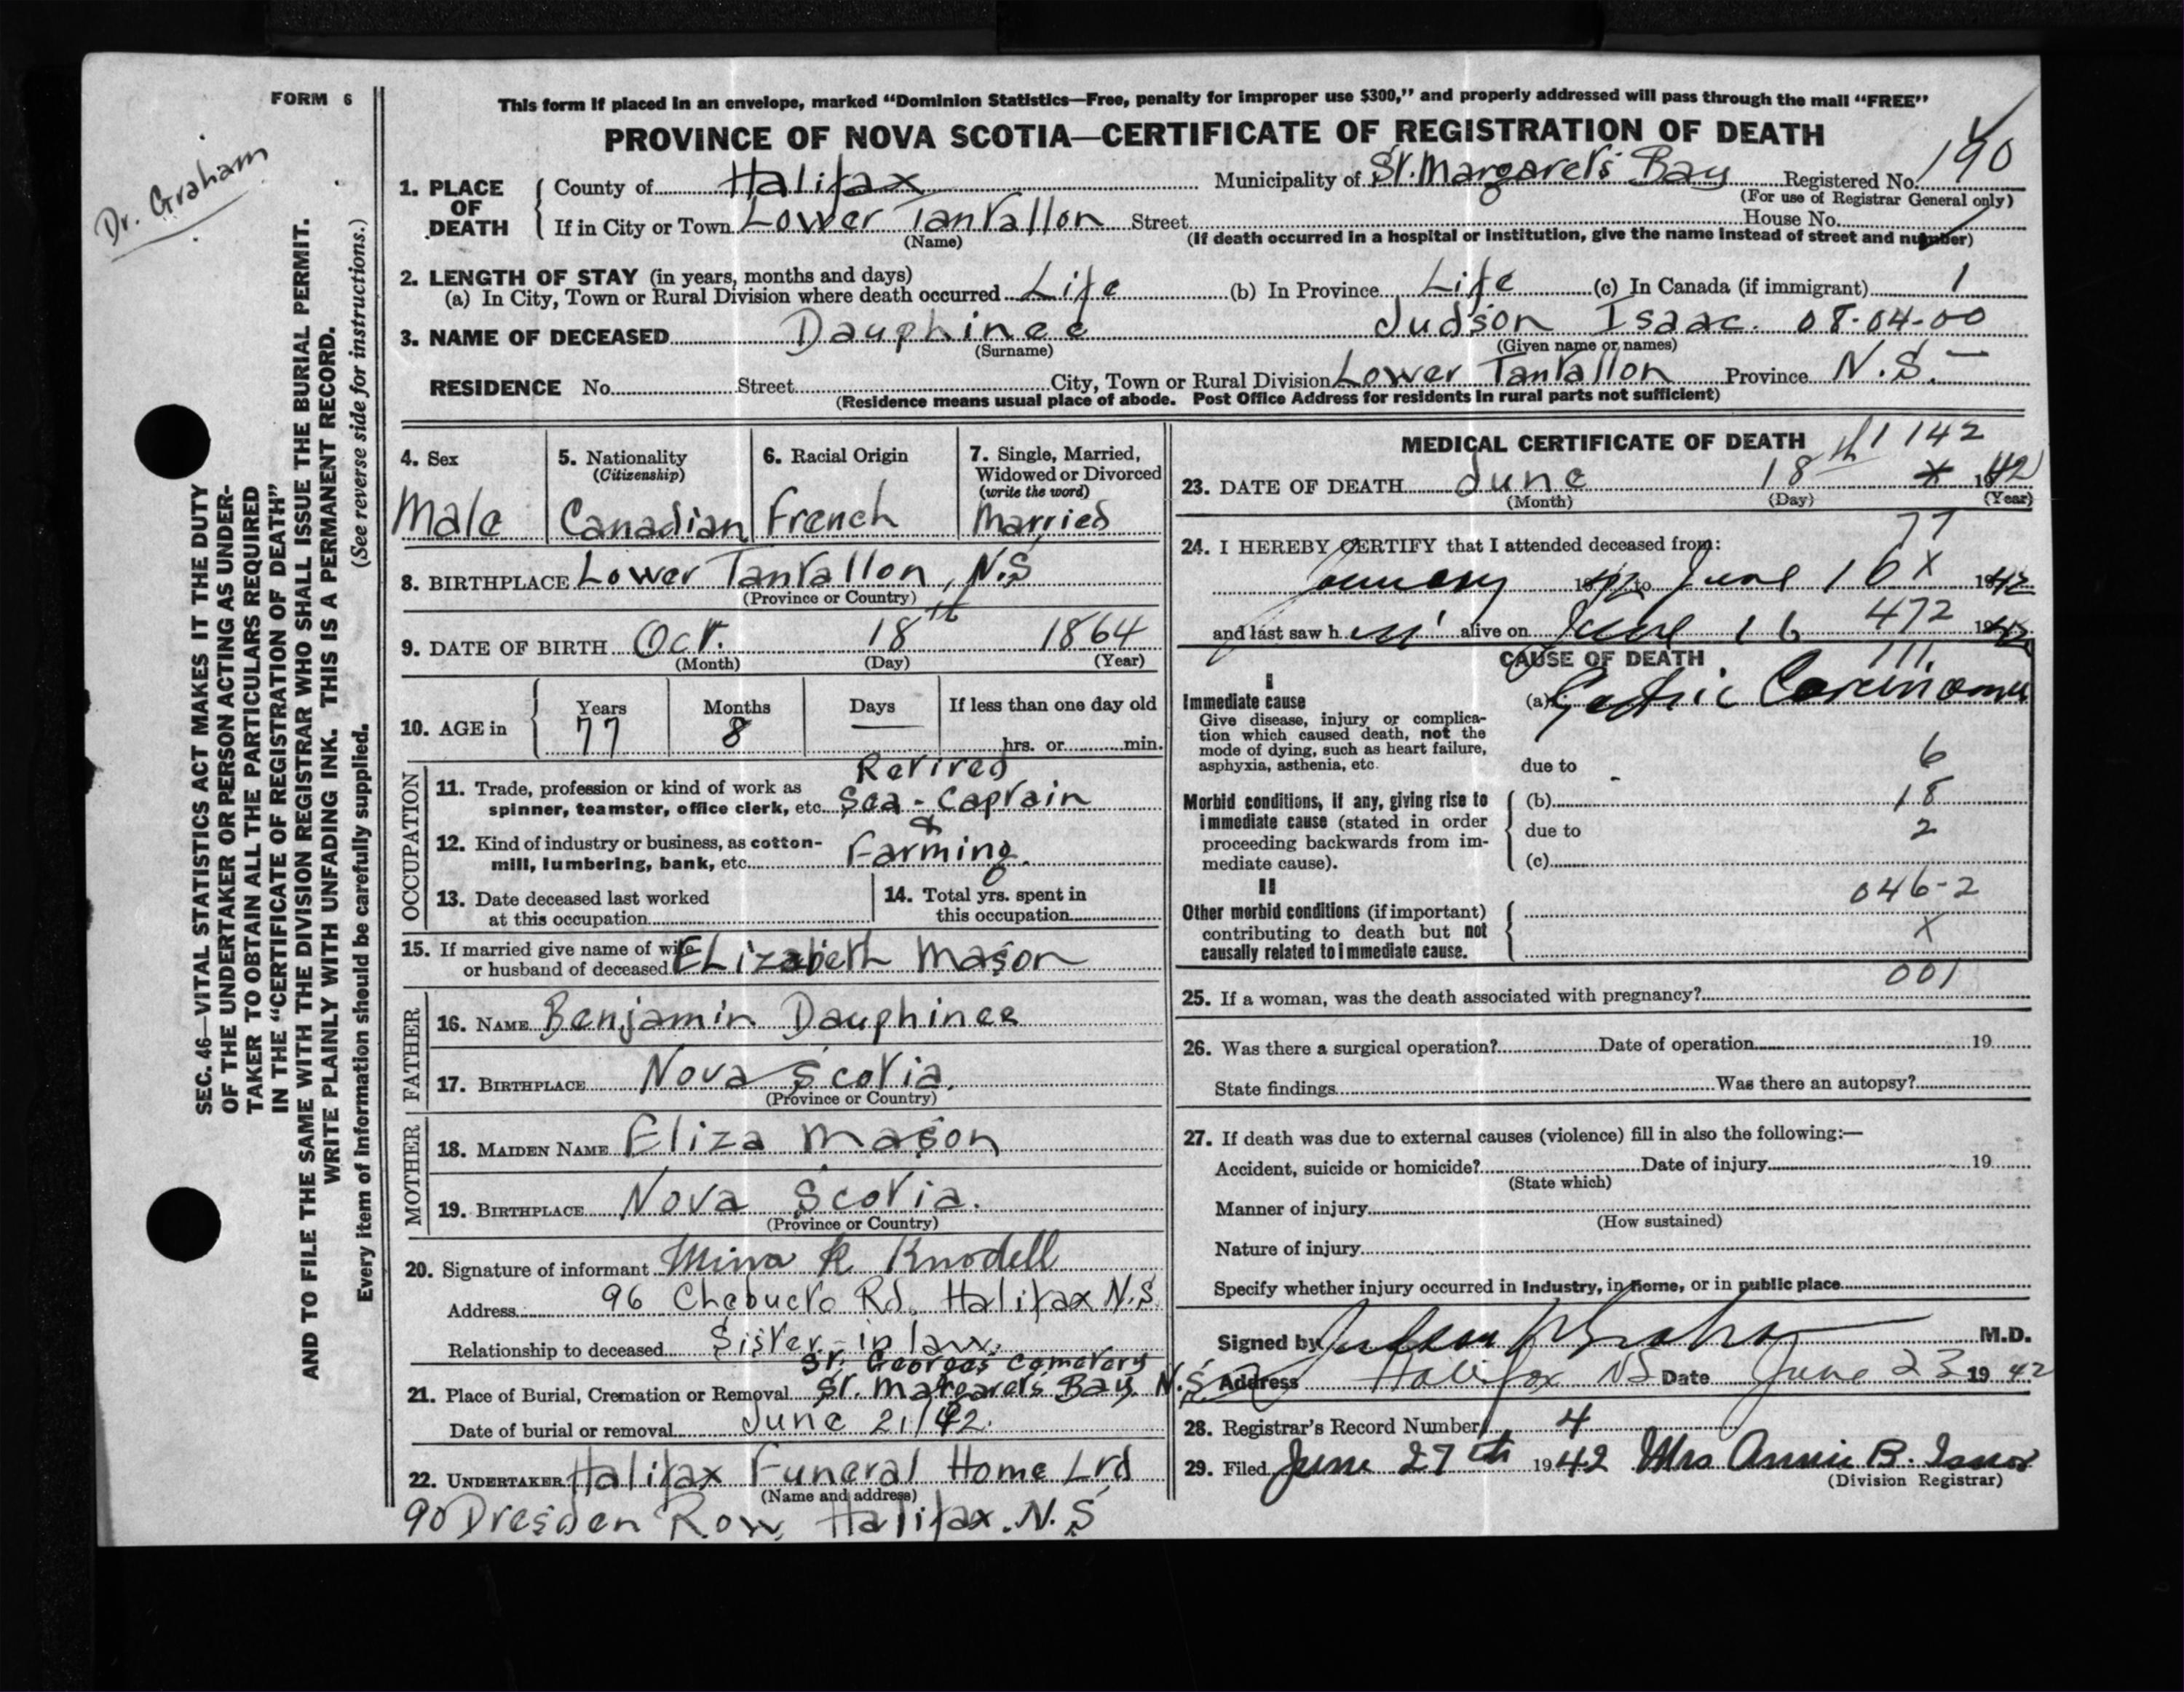 FORM 6
Dr. Graham
SEC. 46—VITAL STATISTICS ACT MAKES IT THE DUTY
OF THE UNDERTAKER OR PERSON ACTING AS UNDER-
TAKER TO OBTAIN ALL THE PARTICULARS REQUIRED
IN THE "CERTIFICATE OF REGISTRATION OF DEATH"
AND TO FILE THE SAME WITH THE DIVISION REGISTRAR WHO SHALL ISSUE THE BURIAL PERMIT.
WRITE PLAINLY WITH UNFADING INK. THIS IS A PERMANENT RECORD.
Every item of information should be carefully supplied. (See reverse side for instructions.)
This form if placed in an envelope, marked "Dominion Statistics—Free, penalty for improper use $300," and properly addressed will pass through the mail "FREE"
PROVINCE OF NOVA SCOTIA—CERTIFICATE OF REGISTRATION OF DEATH
1. PLACE OF DEATH County of Halifax Municipality of St. Margaret's Bay Registered No. 190
(For use of Registrar General only)
If in City or Town Lower Tantallon Street House No.
(Name) (If death occurred in a hospital or institution, give the name instead of street and number)
2. LENGTH OF STAY (in years, months and days)
(a) In City, Town or Rural Division where death occurred Life (b) In Province Life (c) In Canada (if immigrant) 1
3. NAME OF DECEASED Dauphinee Judson Isaac. 08-04-00
(Surname) (Given name or names)
RESIDENCE No. Street City, Town or Rural Division Lower Tantallon Province N.S. —
(Residence means usual place of abode. Post Office Address for residents in rural parts not sufficient)
4. Sex 5. Nationality (Citizenship) 6. Racial Origin 7. Single, Married, Widowed or Divorced (write the word)
Male Canadian French Married
8. BIRTHPLACE Lower Tantallon, N.S
(Province or Country)
9. DATE OF BIRTH Oct. 18th 1864
(Month) (Day) (Year)
10. AGE in Years Months Days If less than one day old
77 8 — hrs. or min.
OCCUPATION
11. Trade, profession or kind of work as spinner, teamster, office clerk, etc. Retired Sea-Captain
&
12. Kind of industry or business, as cotton-mill, lumbering, bank, etc. Farming.
13. Date deceased last worked at this occupation
14. Total yrs. spent in this occupation
15. If married give name of wife or husband of deceased Elizabeth Mason
FATHER
16. NAME Benjamin Dauphinee
17. BIRTHPLACE Nova Scotia.
(Province or Country)
MOTHER
18. MAIDEN NAME Eliza Mason
19. BIRTHPLACE Nova Scotia.
(Province or Country)
20. Signature of informant Mina R Knodell
Address 96 Chebucto Rd. Halifax N.S.
Relationship to deceased Sister-in law.
St. Georges Cemetery
21. Place of Burial, Cremation or Removal St. Margaret's Bay, N.S
Date of burial or removal June 21/42.
22. UNDERTAKER Halifax Funeral Home Ltd
(Name and address)
90 Dresden Row, Halifax. N.S
MEDICAL CERTIFICATE OF DEATH 1142
23. DATE OF DEATH June 18th x 1942
(Month) (Day) (Year)
77
24. I HEREBY CERTIFY that I attended deceased from:
January 1942 to June 16 X 1942
and last saw him alive on June 16 472 1942
CAUSE OF DEATH 111.
I
Immediate cause
Give disease, injury or complication which caused death, not the mode of dying, such as heart failure, asphyxia, asthenia, etc.
(a) Gastric Carcinoma
due to 6
Morbid conditions, if any, giving rise to immediate cause (stated in order proceeding backwards from immediate cause).
(b) 18
due to 2
(c)
II
Other morbid conditions (if important) contributing to death but not causally related to immediate cause.
046-2
X
001
25. If a woman, was the death associated with pregnancy?
26. Was there a surgical operation? Date of operation 19
State findings Was there an autopsy?
27. If death was due to external causes (violence) fill in also the following:—
Accident, suicide or homicide? Date of injury 19
(State which)
Manner of injury
(How sustained)
Nature of injury
Specify whether injury occurred in industry, in home, or in public place
Signed by M.D.
Address Halifax NS Date June 23 1942
28. Registrar's Record Number 4
29. Filed June 27th 1942 Mrs Annie B.
(Division Registrar)